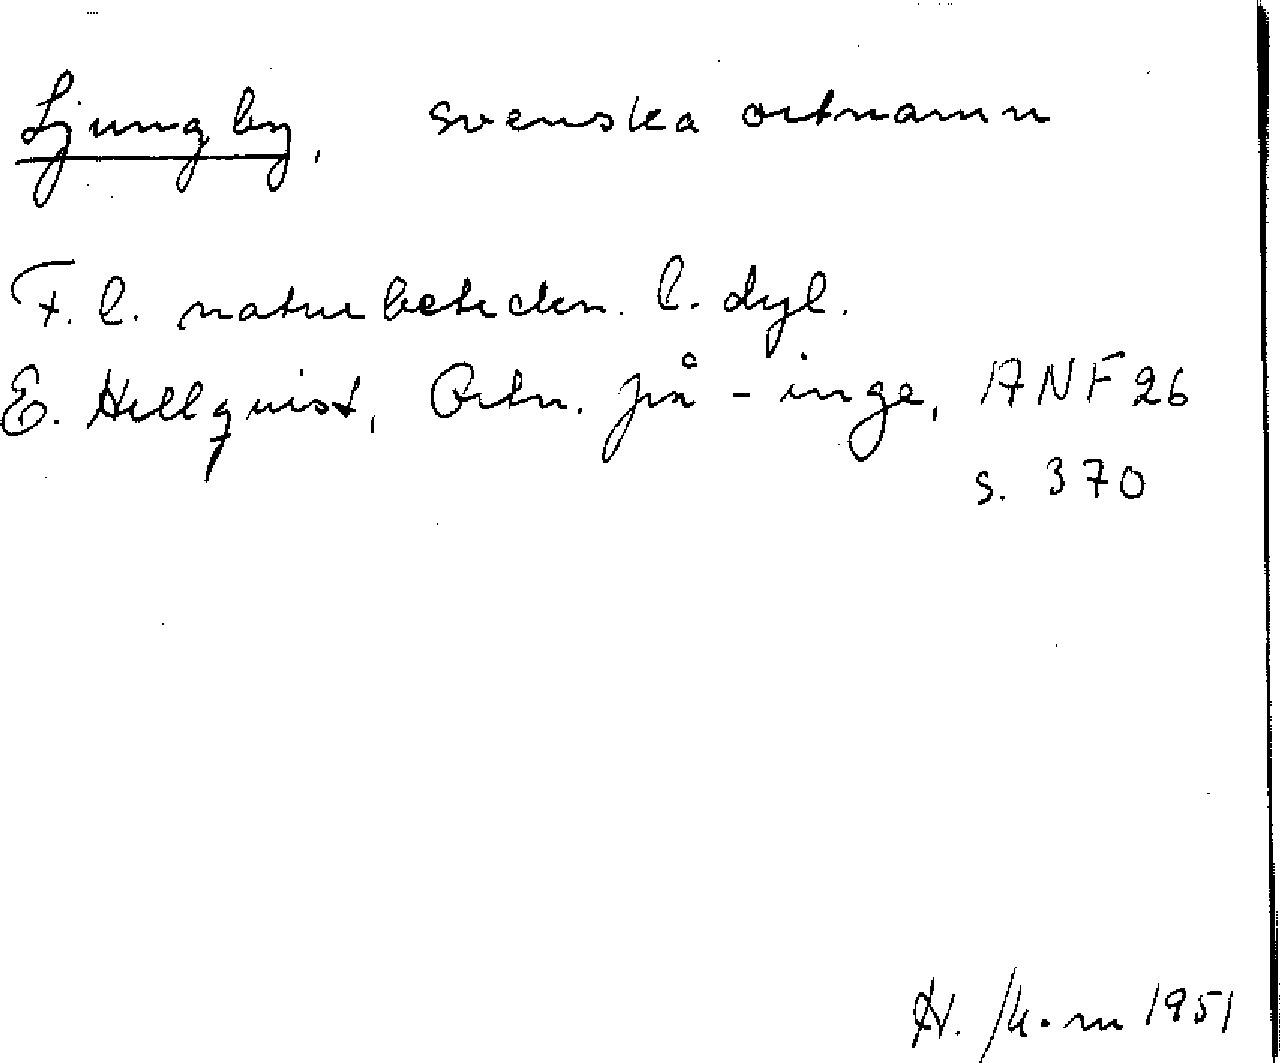 Ljungby, svenska ortnamn
F.l. naturbeteckn. l. dyl.
E. Hellquist, Ortn. på -inge, ANF 26
s. 370
1951